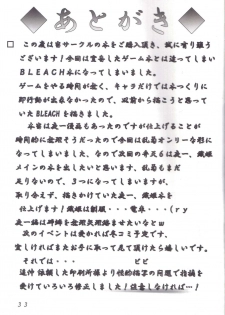 あとがき
□ この度は当サークルの本をご購入頂き、誠に有り難う
ございます!今回は予告したゲーム本とは違ってしまい
BLEACH本になってしまいました。
ゲームをやる時間が無く、キャラだけでは本つくりに
即行動が出来なかったので、以前から描こうと思って
いたBLEACHを描きました。
本当は夜一優品もあったのですが仕上げることが
時間的に無理そうだったので今回は乱菊オンリーな形になっ
てしまいました。なので次回の弁天6は夜一、織姫
メインの本を出したいと思います。乱菊もまだ
足りないので、3つになってしまいますが、
取り合えず、描きかけていた夜一、織姫本を
仕上げます!織姫は制服・・・電車・・・(ry
夜一編は砕蜂を無理矢理絡ませたいなとw
次のイベントは受かれば冬コミ予定です。
宜しければまたお手に取って見て頂けたら嬉しいです。
それでは・・・
追伸 依頼した印刷所様より性的描写の問題で指摘
を受けていろいろ修正しました!自重しなければ…!
33